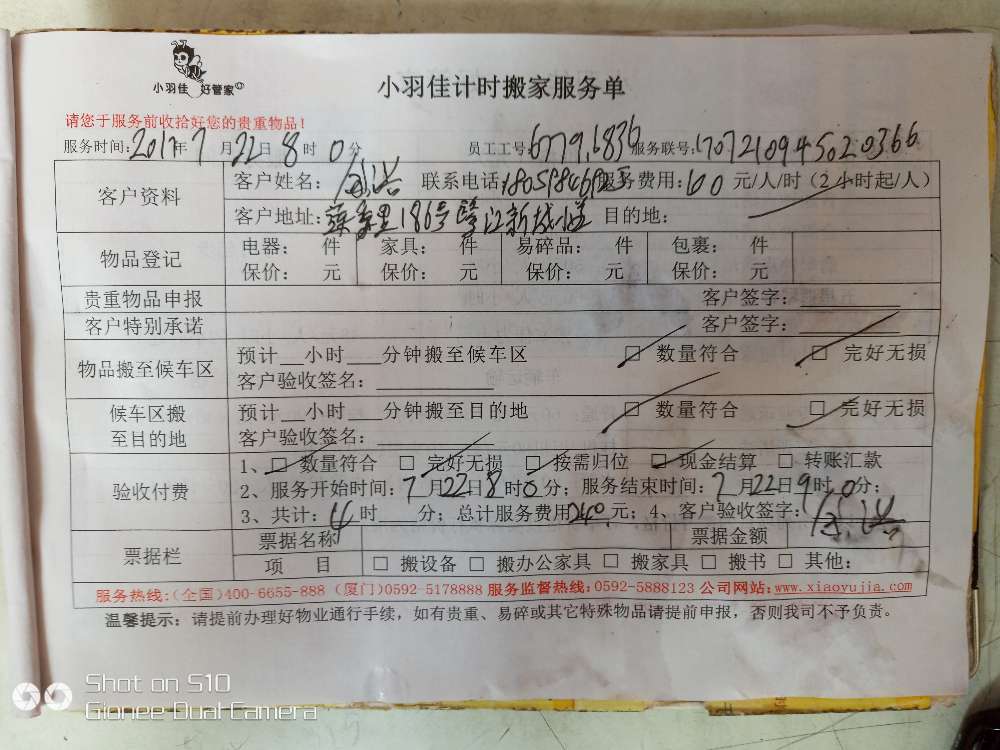 小羽佳 好管家
小羽佳计时搬家服务单
请您于服务前收拾好您的贵重物品!
服务时间:2017年7月22日8时0分 员工工号:6779,6836 服务联号:1707210945020366
客户资料 客户姓名: 联系电话: 服务费用:60元/人/时(2小时起/人)
客户地址: 186号 新城 目的地:
物品登记 电器: 件 家具: 件 易碎品: 件 包裹: 件
保价: 元 保价: 元 保价: 元 保价: 元
贵重物品申报 客户签字:
客户特别承诺 客户签字:
物品搬至候车区 预计__小时___分钟搬至候车区 □ 数量符合 □ 完好无损
客户验收签名:
候车区搬至目的地 预计__小时___分钟搬至目的地 □ 数量符合 □ 完好无损
客户验收签名:
验收付费 1、□ 数量符合 □ 完好无损 □ 按需归位 □ 现金结算 □ 转账汇款
2、服务开始时间:7月22日8时0分;服务结束时间:7月22日9时0分;
3、共计:4时___分;总计服务费用240元;4、客户验收签字:
票据栏 票据名称 票据金额
项 目 □ 搬设备 □ 搬办公家具 □ 搬家具 □ 搬书 □ 其他:
服务热线:(全国)400-6655-888 (厦门)0592-5178888 服务监督热线:0592-5888123 公司网站:www.xiaoyujia.com
温馨提示:请提前办理好物业通行手续,如有贵重、易碎或其它特殊物品请提前申报,否则我司不予负责。
Shot on S10
Gionee Dual Camera